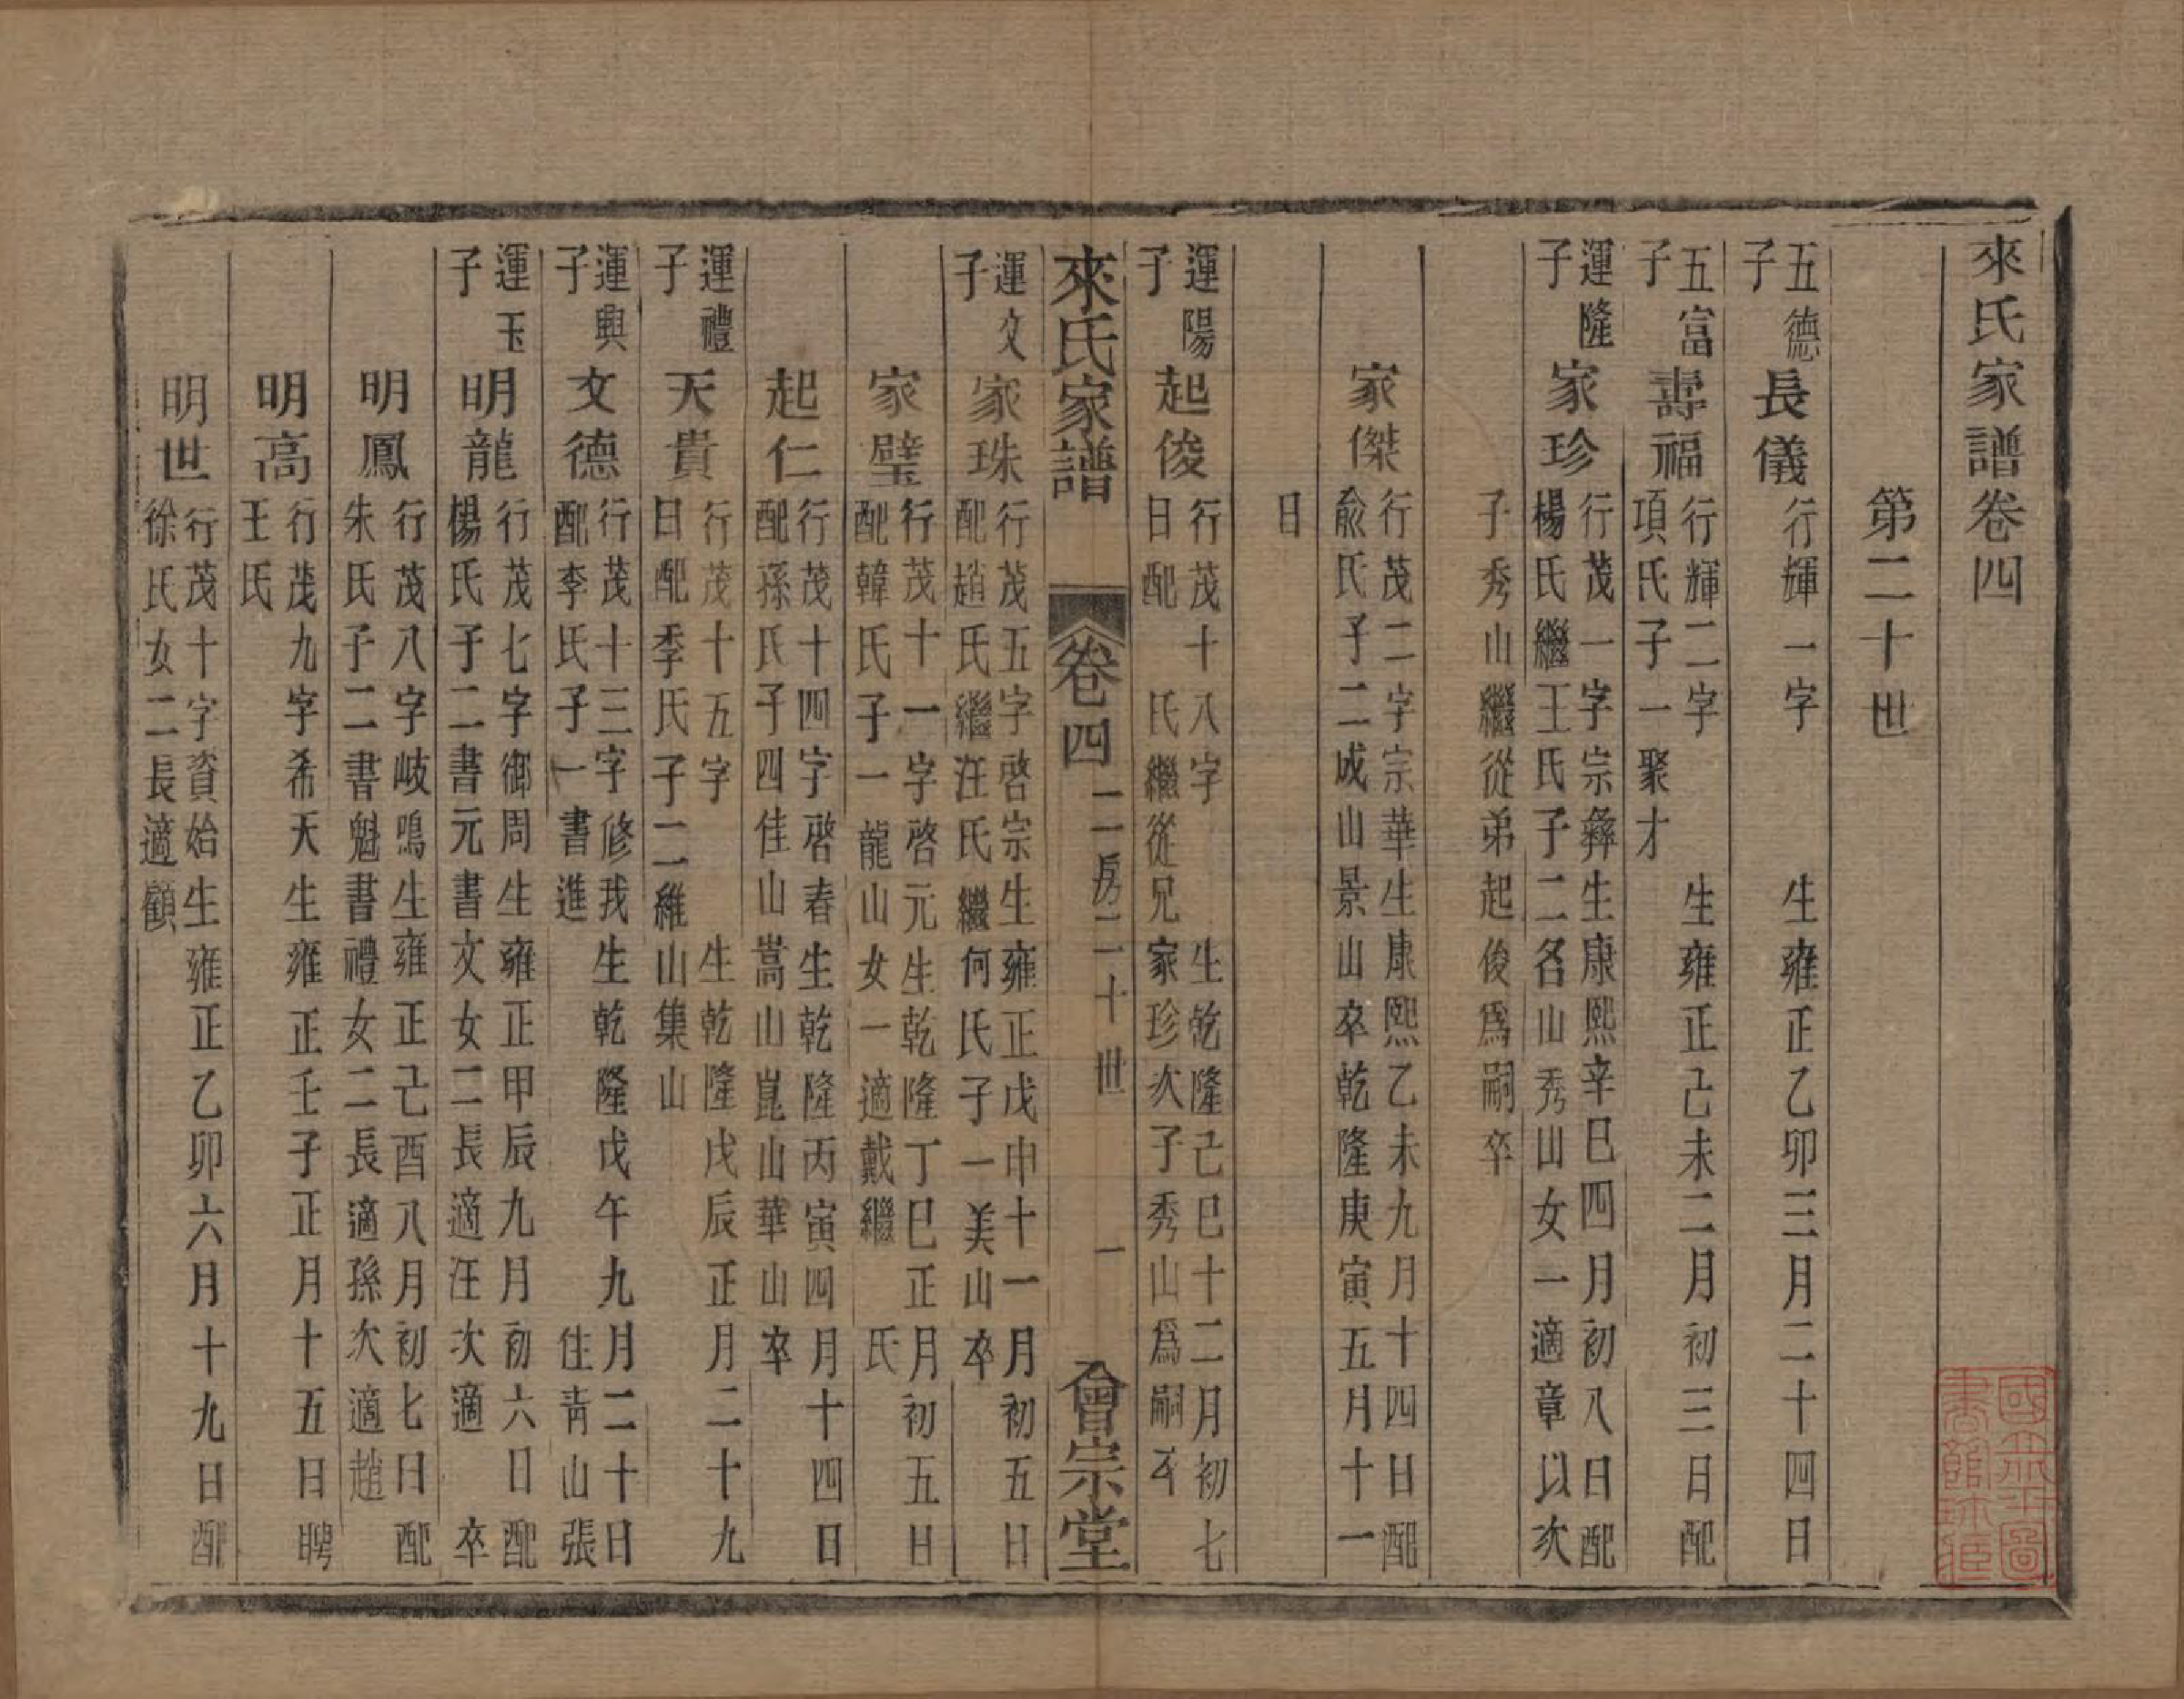 來氏家譜卷四
第二十世
五德子
長儀
行輝一字　　生雍正乙卯三月二十四日
五富子
壽福
行輝二字　　生雍正己未二月初三日配
項氏子一聚才
運隆子
家珍
行茂一字宗彝生康熙辛巳四月初八日配
楊氏繼王氏子二名山秀山女一適章以次
子秀山繼從弟起俊爲嗣卒
家傑
行茂二字宗華生康熙乙未九月十四日配
兪氏子二成山景山卒乾隆庚寅五月十一
日
運陽子
起俊
行茂十八字　　生乾隆己巳十二月初七
日配　氏繼從兄家珍次子秀山爲嗣卒
來氏家譜　卷四　二房二十世　一　會宗堂
運文子
家珠
行茂五字啓宗生雍正戊申十一月初五日
配趙氏繼汪氏繼何氏子一美山卒
家璧
行茂十一字啓元生乾隆丁巳正月初五日
配韓氏子一龍山女一適戴繼　氏
起仁
行茂十四字啓春生乾隆丙寅四月十四日
配孫氏子四佳山嵩山崑山華山卒
運禮子
天貴
行茂十五字　　生乾隆戊辰正月二十九
日配季氏子二維山集山
運興子
文德
行茂十三字修我生乾隆戊午九月二十日
配李氏子一書進　　住靑山張
運玉子
明龍
行茂七字御周生雍正甲辰九月初六日配
楊氏子二書元書文女二長適汪次適　卒
明鳳
行茂八字岐鳴生雍正己酉八月初七日配
朱氏子二書魁書禮女二長適孫次適趙
明高
行茂九字希天生雍正壬子正月十五日聘
王氏
明世
行茂十字資始生雍正乙卯六月十九日配
徐氏女二長適顧